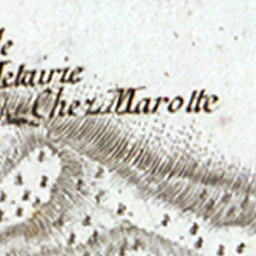 le
Metairie
Chez Marotte